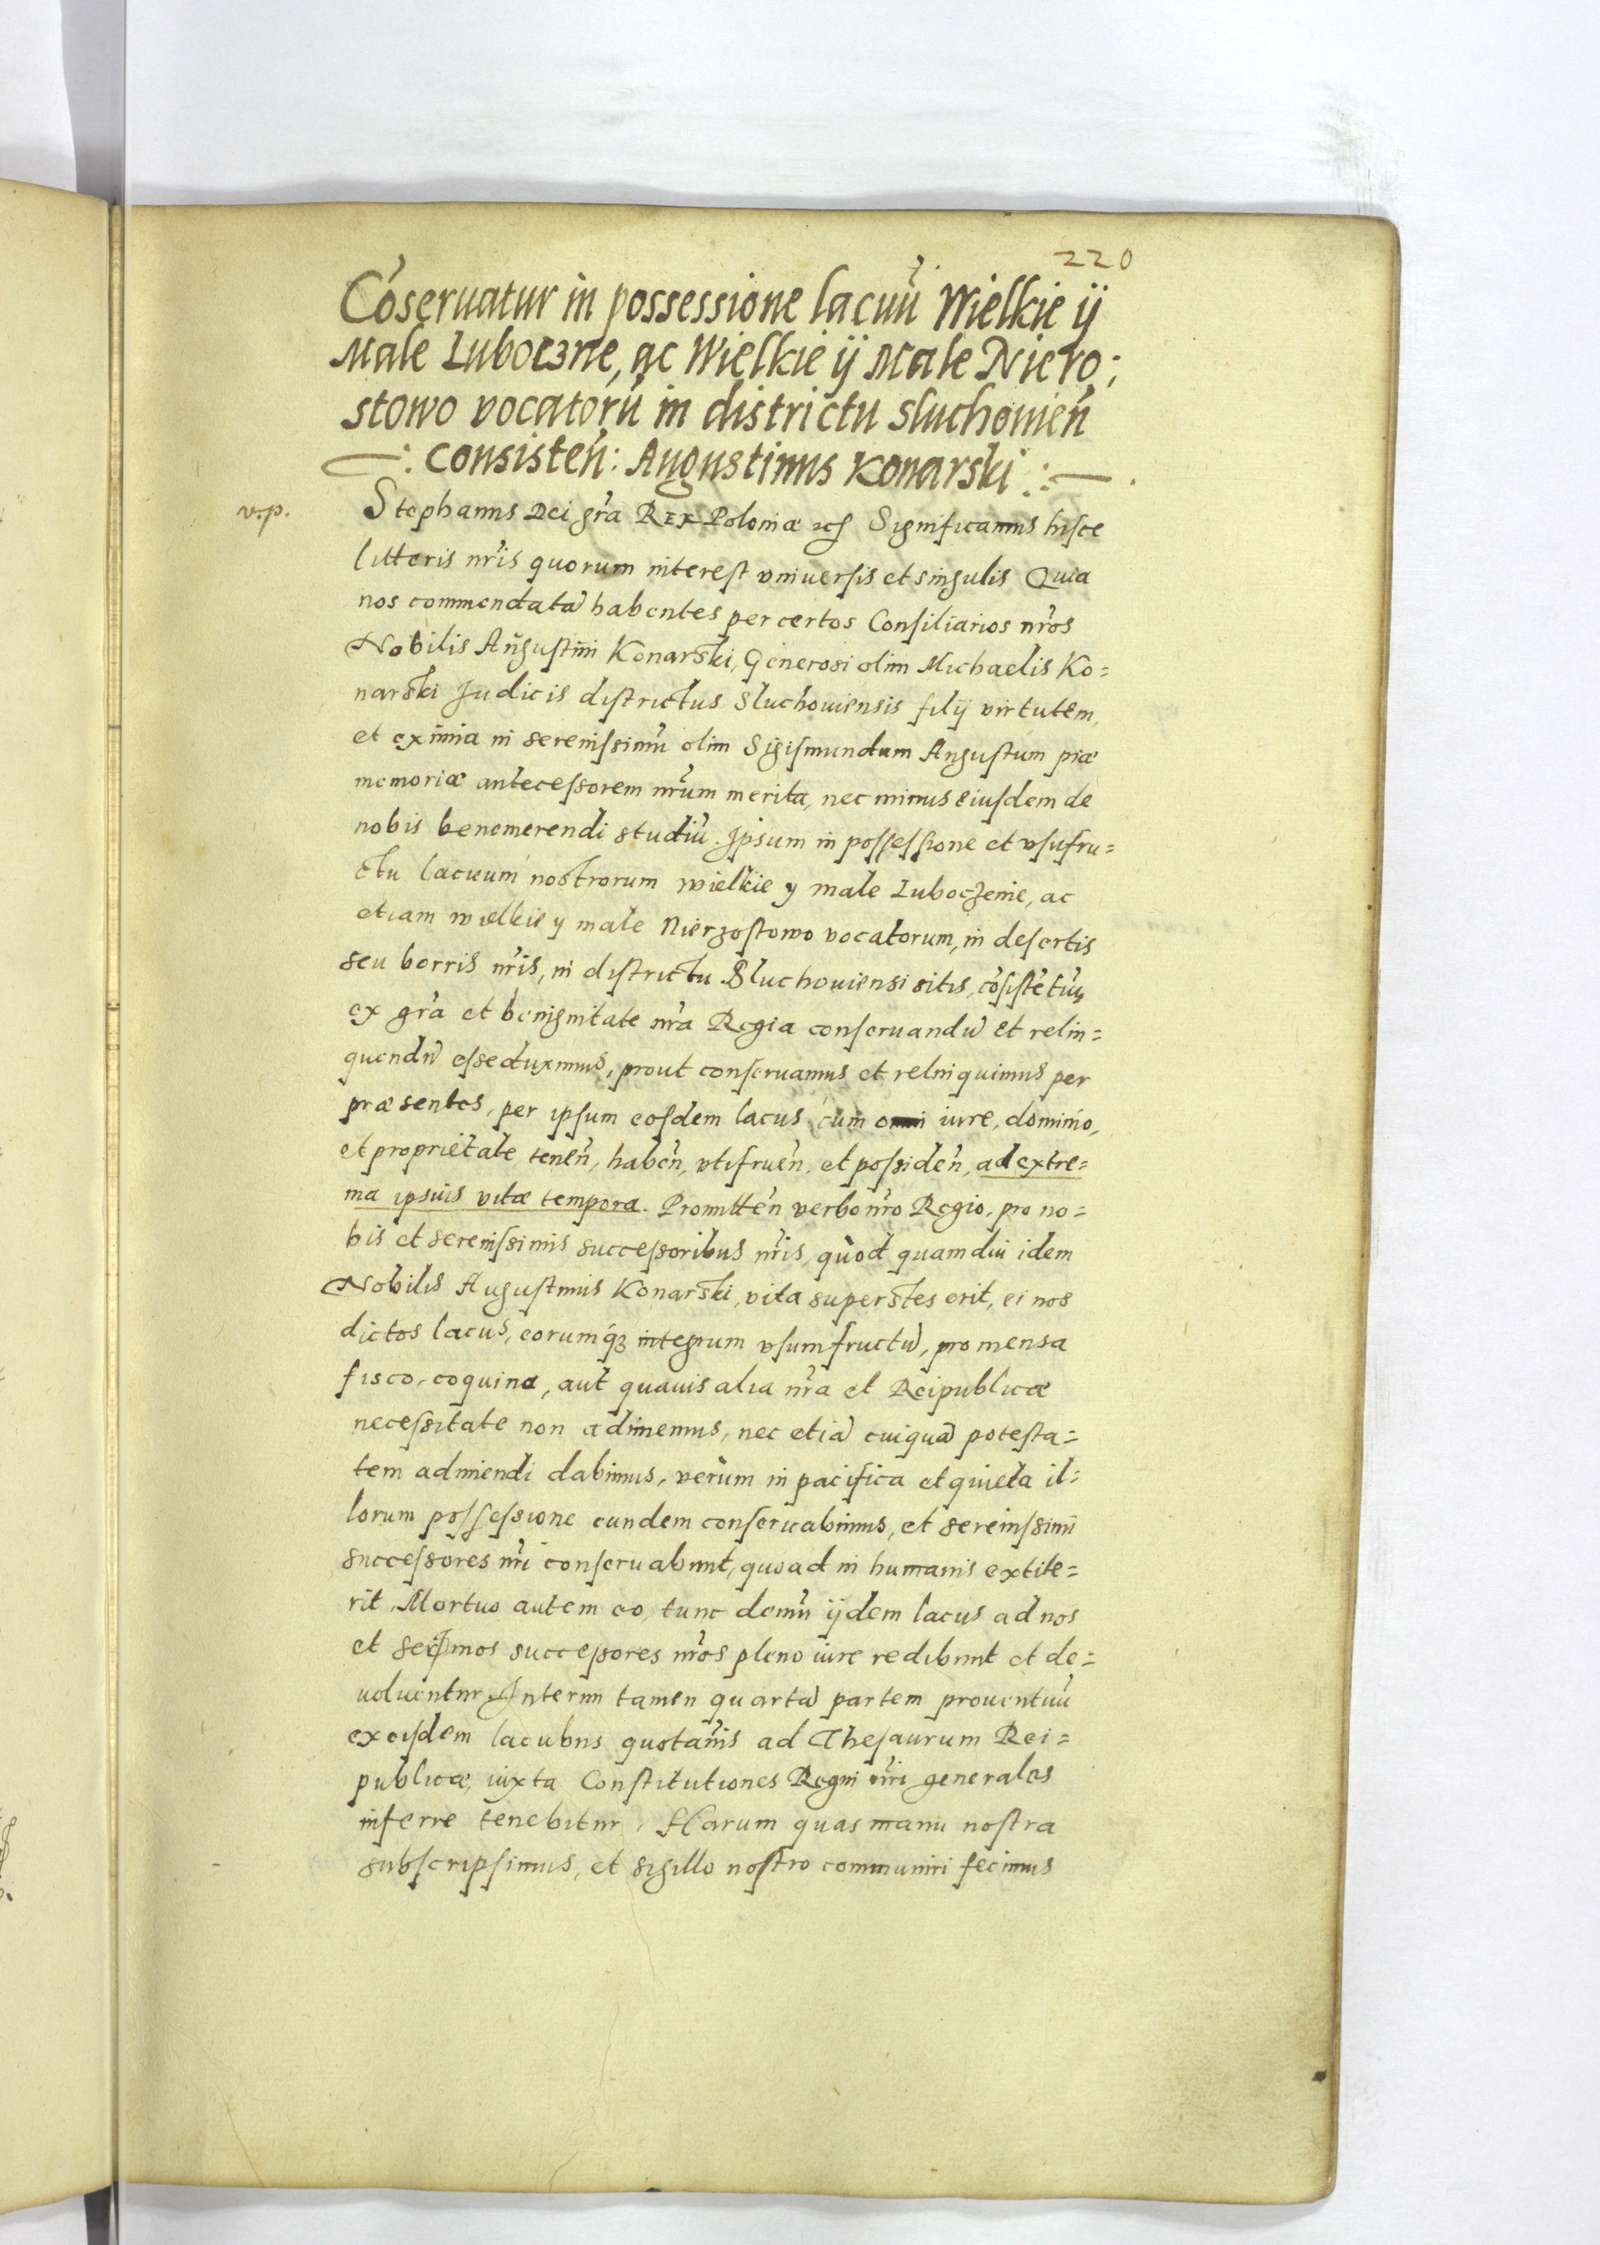 220
Cōseruatur in possessione lacuū Wielkie ij
Male Luboczne, ac Wielkie ij Male Niero;
stowo vocatorū in districtu Sluchouieñ
consisteñ: Augustinus Konarski
v.p.
Stephanus Dei gr̃a Rex Poloniæ Significamus hisce
litteris nr̃is quorum interest vniuersis et singulis Quia
nos commendatā habentes per certos Consiliarios nr̃os
Nobilis Augustini Konarski, Generosi olim Michaelis Ko=
narski Judicis districtus Sluchouiensis filij virtutem,
et eximia in serenissimū olim Sigismundum Augustum piæ
memoriæ antecessorem nr̃um merita, nec minus eiusdem de
nobis benemerendi studiū. Ipsum in possessione et vsufru=
ctu lacuum nostrorum wielkie y male Luboczenie, ac
etiam wielkie y male Nierzostowo vocatorum, in desertis
seu borris nr̃is, in districtu Sluchouiensi sitis, cōsistētiū,
ex gr̃a et benignitate nr̃a Regia conseruandū et relin=
quendū esse duximus, prout conseruamus et relinquimus per
præsentes, per ipsum eosdem lacus cum omni iure, dominio,
et proprietate teneñ, habeñ, vtifrueñ, et possideñ, ad extre=
ma ipsius vitæ tempora. Promitteñ verbo nr̃o Regio, pro no=
bis et serenissimis successoribus nr̃is, quòd quamdiu idem
Nobilis Augustinus Konarski, vita superstes erit, ei nos
dictos lacus, eorumq3 integrum vsumfructū, pro mensa
fisco, coquina, aut quauis alia nr̃a et Reipublicæ
necessitate non adimemus, nec etiā cuiquā potesta=
tem adimendi dabimus, verùm in pacifica et quieta il=
lorum possessione eundem conseruabimus, et serenissimi
successores nr̃i conseruabunt, quoad in humanis extite=
rit, Mortuo autem eo, tunc demū ijdem lacus ad nos
et successores nr̃os pleno iure redibunt et de=
uoluentur. Interim tamen quartā partem prouentuū
ex eisdem lacubus quotañis ad Thesaurum Rei=
publicæ, iuxta Constitutiones Regni nr̃i generales
inferre tenebitur. Harum quas manu nostra
subscripsimus, et sigillo nostro communiri fecimus